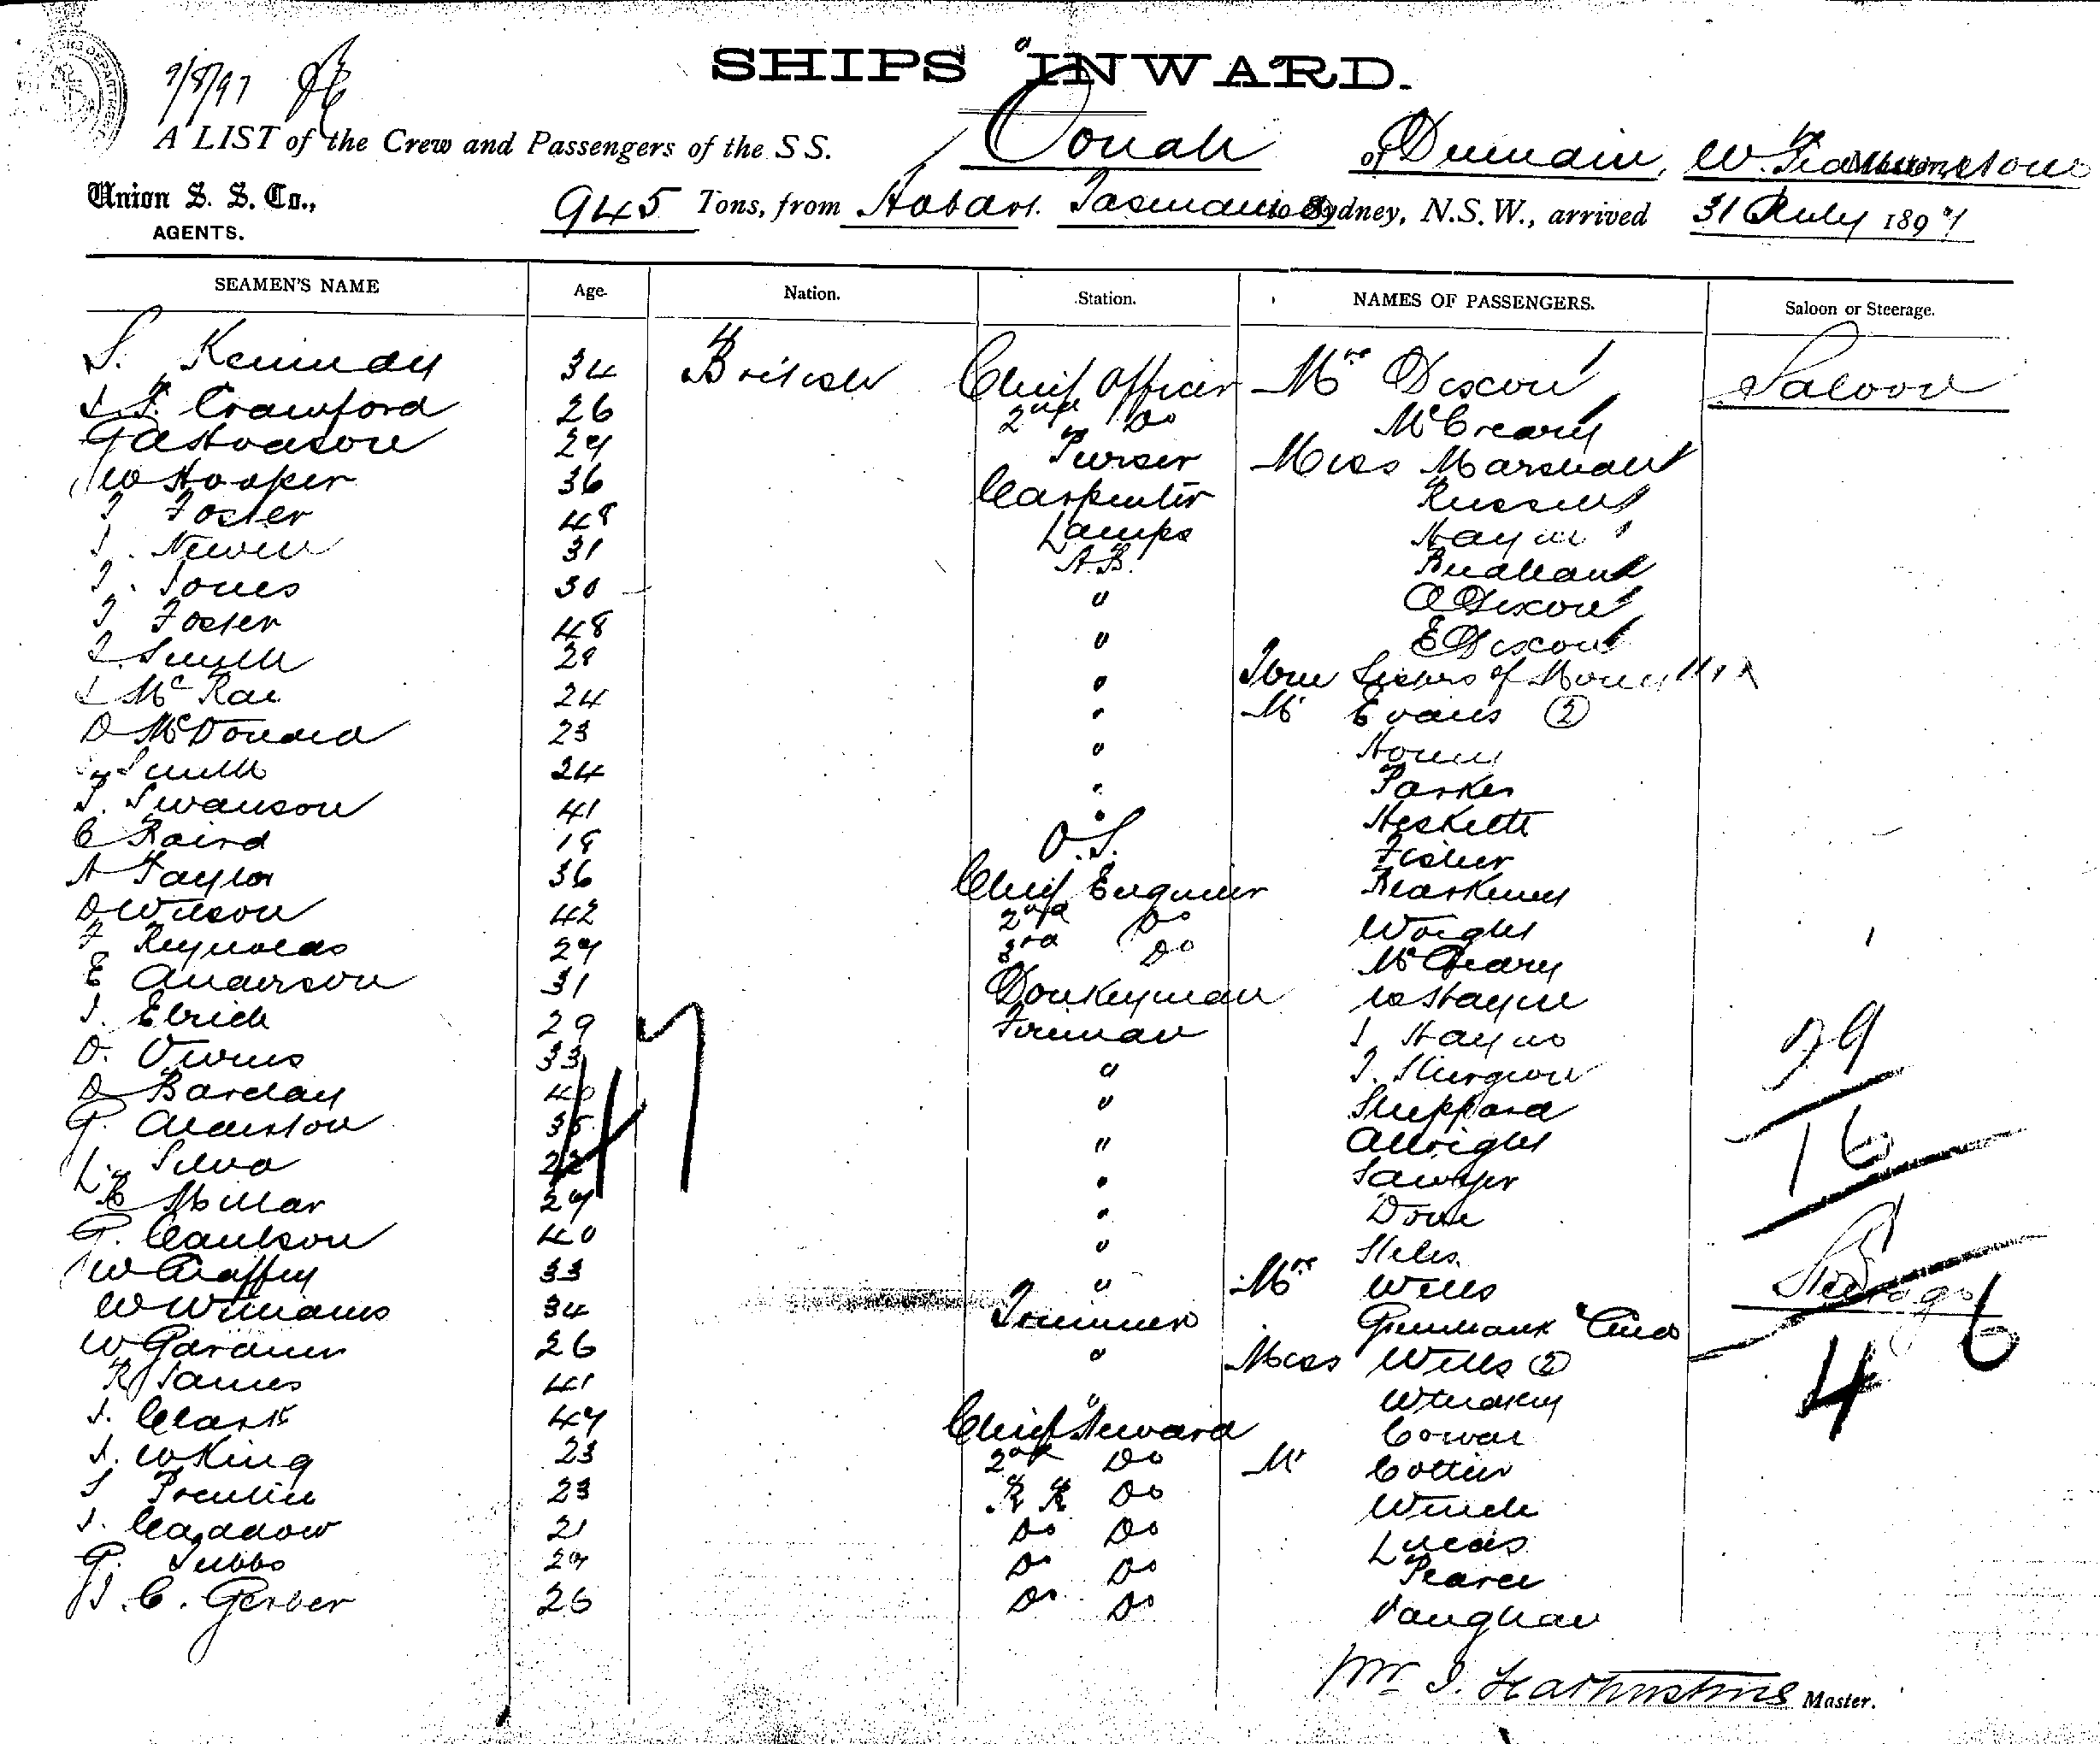 9/8/97
SHIPS INWARD.
A LIST of the Crew and Passengers of the S S. Oonah of Dunedin, W.
Union S. S. Co.,
AGENTS.
945 Tons, from Hobart. Tasmania to Sydney, N.S.W., arrived 31 July 1897
SEAMEN'S NAME Age. Nation. Station. NAMES OF PASSENGERS. Saloon or Steerage.
S. Kennedy 34 British Chief Officer Mrs Dixon Saloon
Crawford 26 2nd Do McCreary
29 Purser Miss Marshall
W Hooker 36 Carpenter Russell
T Foster 48 Lamps Hayne
J. Newell 31 A.B.
T. Jones 30 " O Dixon
T Foster 48 " E Dixon
J. Smith 28 " Sisters of
J McRae 24 " Mr Evans 2
D McDonald 23 "
Smith 24 " Parker
Swanson 41 " Heskett
C Baird 18 O.S. Fisher
A Taylor 36 Chief Engineer
D Wilson 42 2nd Do Wright
F Reynolds 29 3rd Do McCreary
E Anderson 31 Donkeyman W Hayne
J. Elrick 29 Fireman J Hayne
D. Owens 33 " J.
D Barclay 40 " Sheppard
G. Alderston 35 " Allright
L. Silva 22 " Sawyer
Millar 29 " Dove
G. 40 " Stiles
W Caffery 33 " Mrs Wells
W Williams 34 Trimmer Greenbank Child
W Gardner 26 " Miss Wells 2
R James 41 "
J. Clark 47 Chief Steward Cowan
J. W King 23 2nd Do Mr Cottier
23 Do
J. Caddow 21 Do Do Lucas
G. Tubbs 29 Do Do Pearce
J. C. Gerber 26 Do Do Vaughan
47
29
16
Steerage
46
Master.